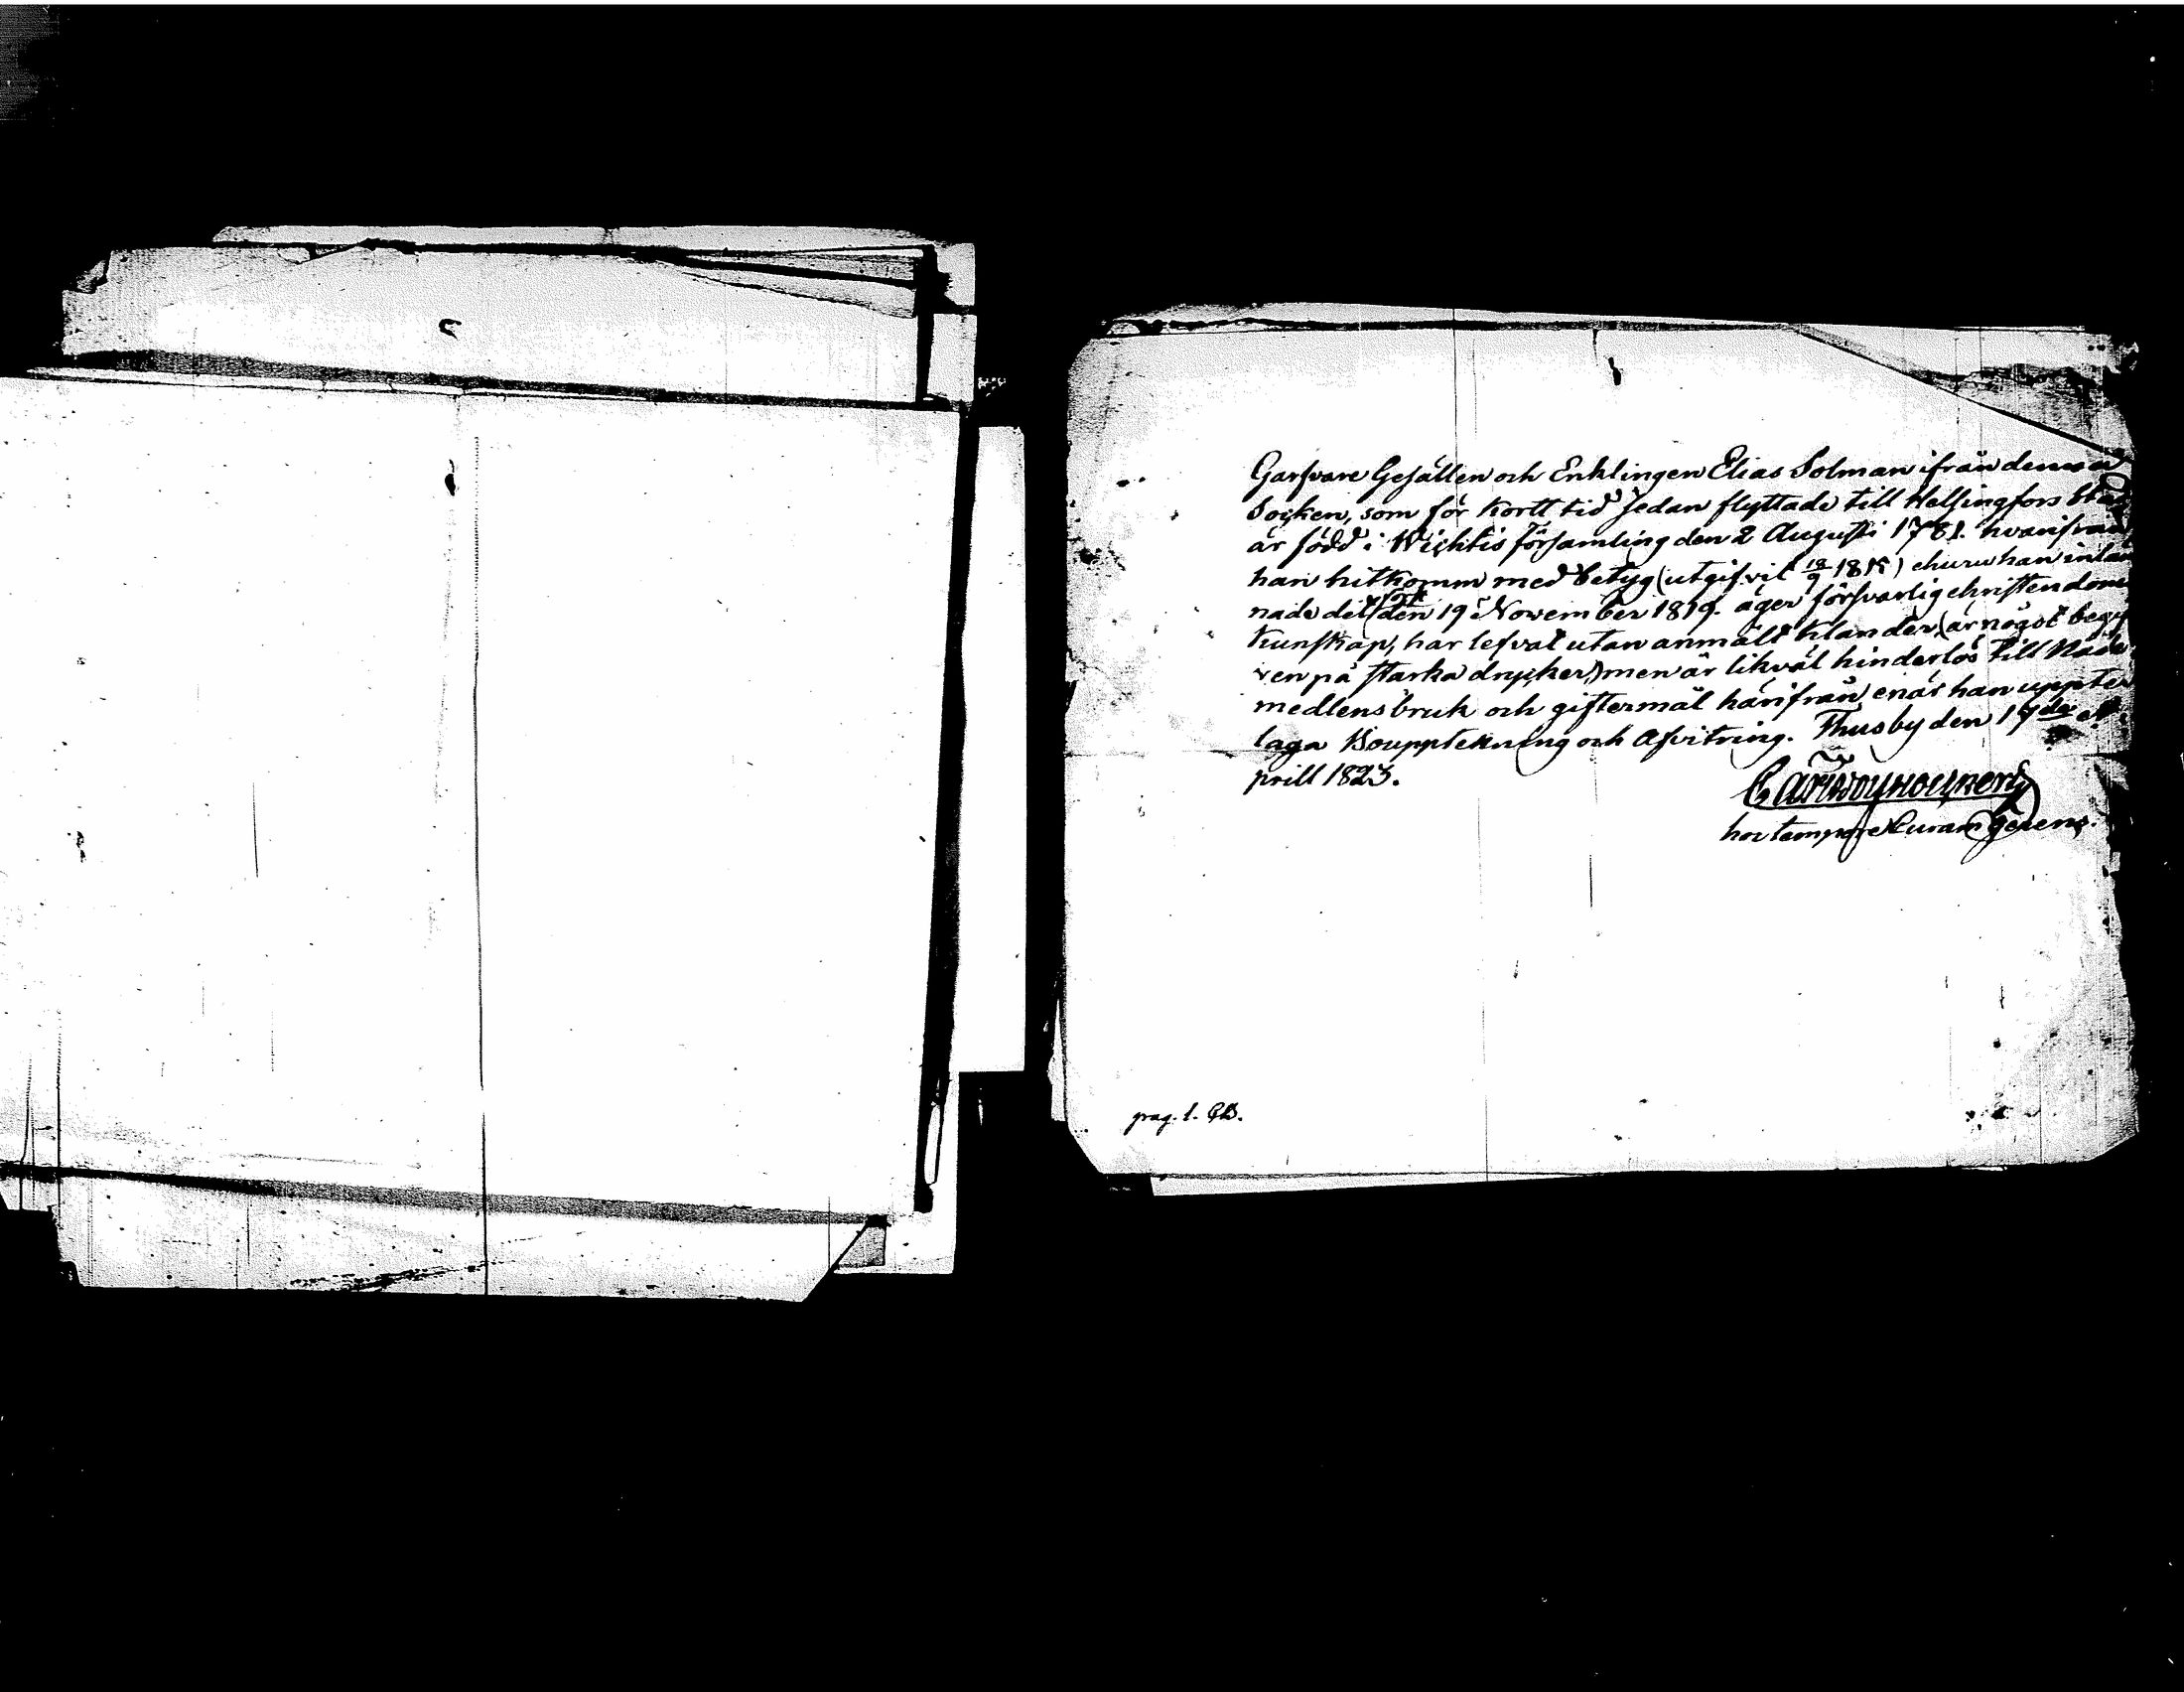 Garfvare Gesällen och Enklingen Elias Solman ifrån denna
Socken, som för kort tid sedan flyttade till Helsingfors Stad
är född i Wichtis församling den 2 Augusti 1781. hvarifrån
han hitkomm med betyg (utgifvit 18/9 1815) ehuru han inläm
nade det först den 19 November 1819. äger försvarlig christendoms
kunskap, har lefvat utan anmält klander, (är något begif
ven på starka drycker,) men är likväl hinderlös till Nåde
medlens bruk och giftermål härifrån, enär han uppter
laga Bouppteckning och Afvitring. Thusby den 17de A
prill 1823.
hoc tempore Curam gerens.
pag. 1.